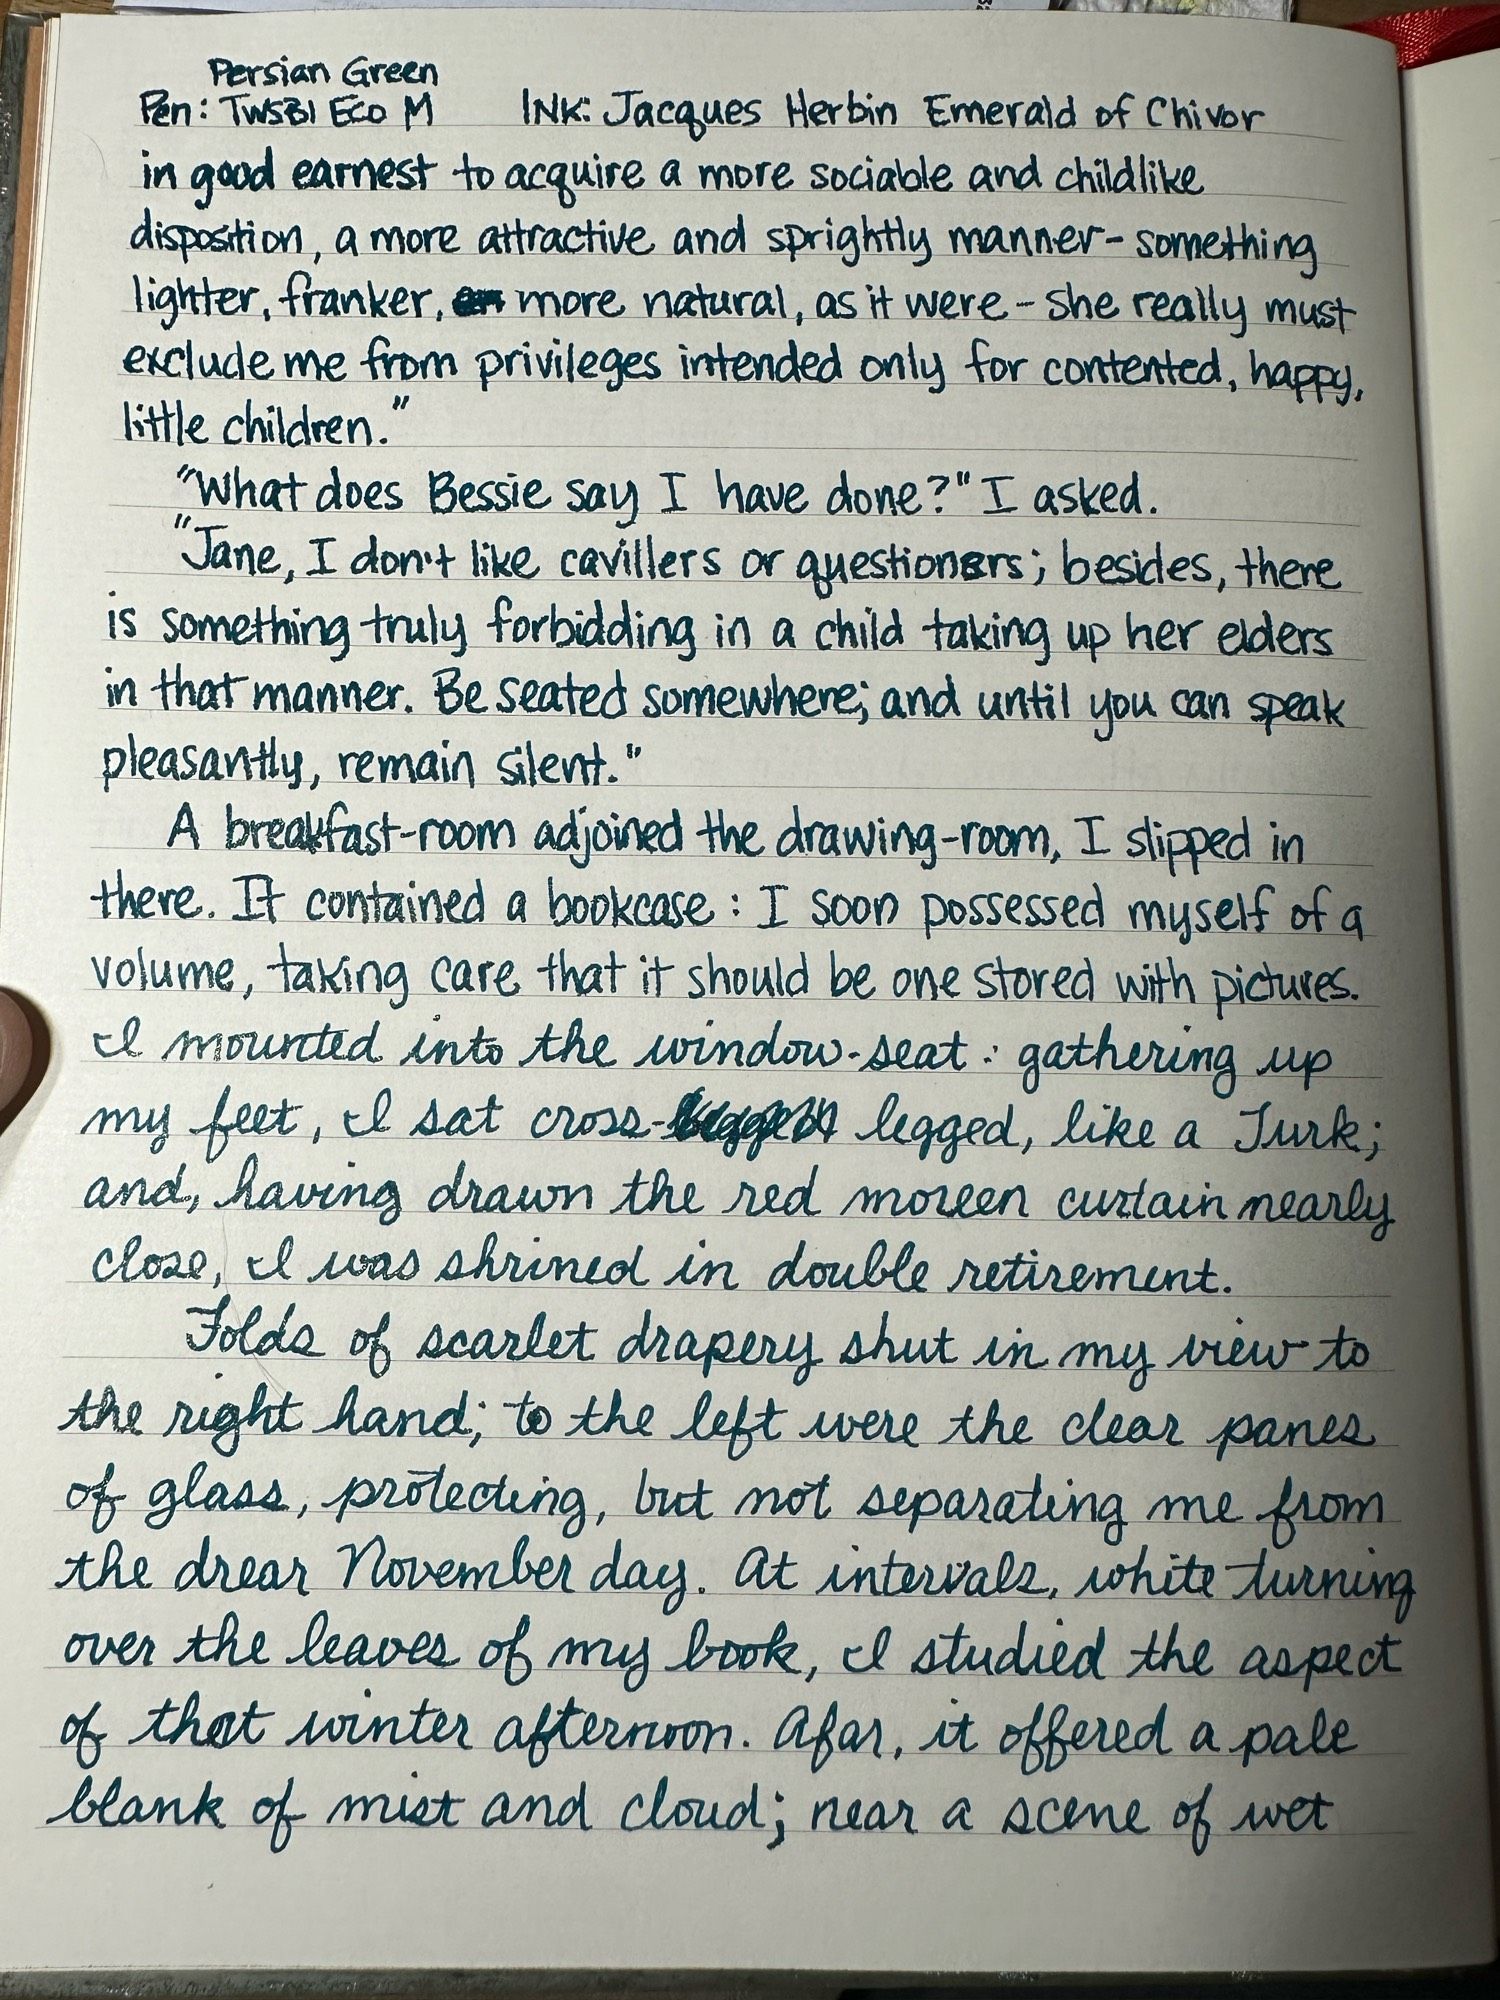 Persian Green
Pen: TWSBI Eco M INK: Jacques Herbin Emerald of Chivor
in good earnest to acquire a more sociable and childlike
disposition, a more attractive and sprightly manner - something
lighter, franker, more natural, as it were - she really must
exclude me from privileges intended only for contented, happy,
little children."
"What does Bessie say I have done?" I asked.
"Jane, I don't like cavillers or questioners; besides, there
is something truly forbidding in a child taking up her elders
in that manner. Be seated somewhere; and until you can speak
pleasantly, remain silent."
A breakfast-room adjoined the drawing-room, I slipped in
there. It contained a bookcase: I soon possessed myself of a
volume, taking care that it should be one stored with pictures.
I mounted into the window-seat: gathering up
my feet, I sat cross- legged, like a Turk;
and, having drawn the red moreen curtain nearly
close, I was shrined in double retirement.
Folds of scarlet drapery shut in my view to
the right hand; to the left were the clear panes
of glass, protecting, but not separating me from
the drear November day. At intervals, white turning
over the leaves of my book, I studied the aspect
of that winter afternoon. Afar, it offered a pale
blank of mist and cloud; near a scene of wet